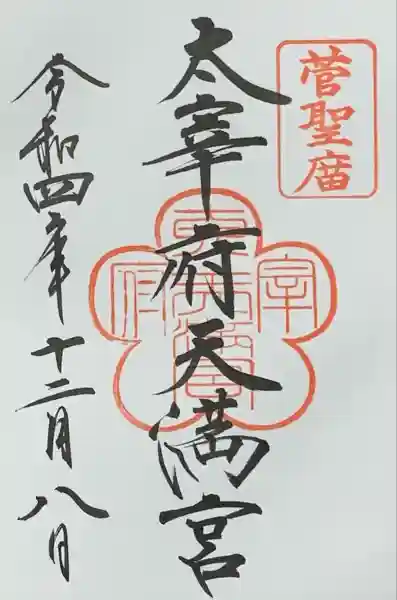 菅聖廟
太宰府天満宮
令和四年十二月八日